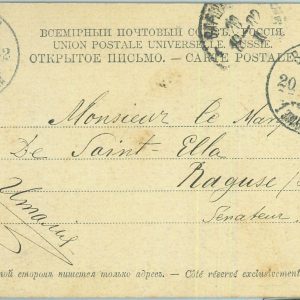 ВСЕМІРНЫЙ ПОЧТОВЫЙ СОЮЗЪ. РОССІЯ.
UNION POSTALE UNIVERSELLE. RUSSIE.
ОТКРЫТОЕ ПИСЬМО. — CARTE POSTALE
Monsieur le Mar
De Saint-Ella
Raguse
Senateur
Италия
ой сторонѣ пишется только адресъ. — Côté réservé exclusivement
20